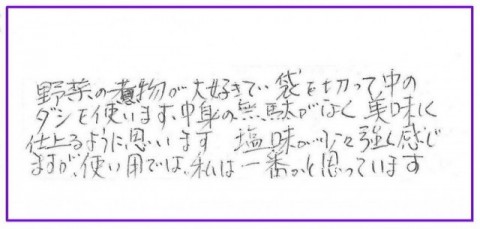 野菜の煮物が大好きで、袋を切って中の
ダシを使います、中身の無駄がなく美味く
仕上るように思います 塩味が少々強く感じ
ますが、使い用では、私は一番かと思っています